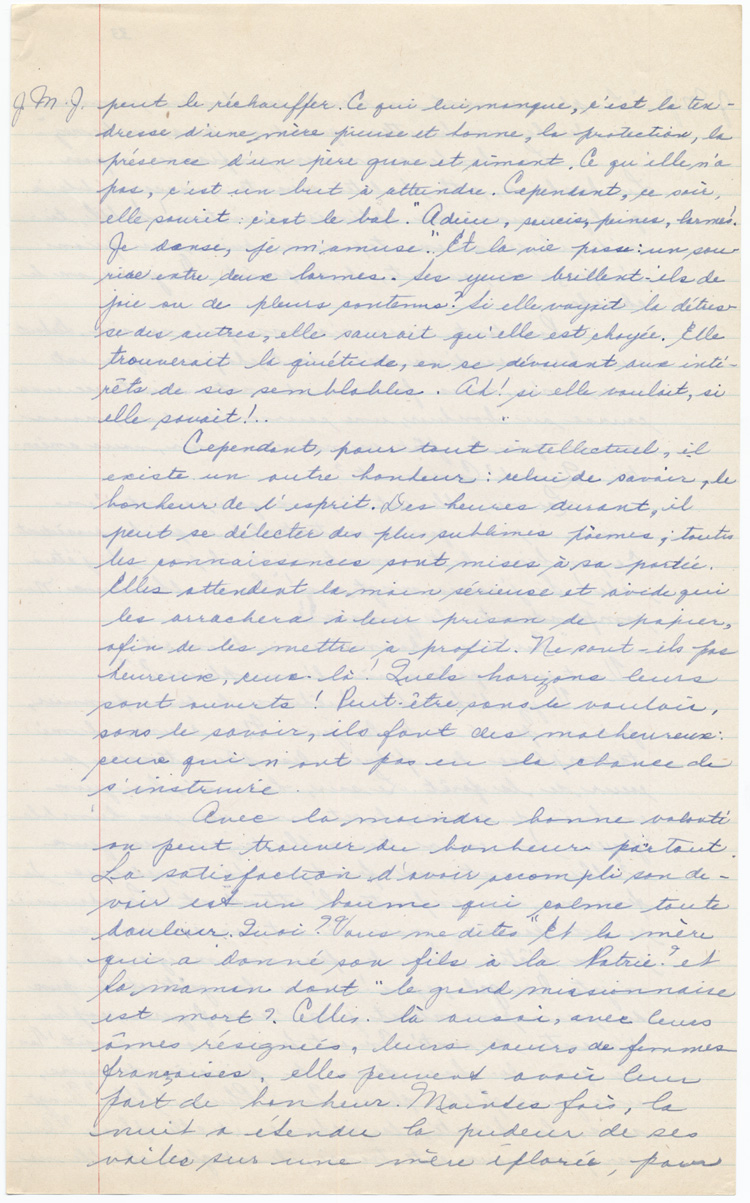 J.M.J. peut le réchauffer. Ce qui lui manque, c'est la ten-
dresse d'une mère pieuse et bonne, la protection, la
présence d'un père grave et aimant. Ce qu'elle n'a
pas, c'est un but à atteindre. Cependant, ce soir,
elle sourit : c'est le bal. "Adieu, soucis, peines, larmes!
Je danse, je m'amuse." Et la vie passe : un sou-
rire entre deux larmes. Ses yeux brillent-ils de
joie ou de pleurs contenus? Si elle voyait la détres-
se des autres, elle saurait qu'elle est choyée. Elle
trouverait la quiétude, en se dévouant aux inté-
rêts de ses semblables. Ah! si elle voulait, si
elle savait!..
Cependant, pour tout intellectuel, il
existe un autre bonheur : celui de savoir, le
bonheur de l'esprit. Des heures durant, il
peut se délecter des plus sublimes poèmes ; toutes
les connaissances sont mises à sa portée.
Elles attendent la main sérieuse et avide qui
les arrachera à leur prison de papier,
afin de les mettre à profit. Ne sont-ils pas
heureux, ceux-là! Quels horizons leurs
sont ouverts! Peut-être sans le vouloir,
sans le savoir, ils font des malheureux :
ceux qui n'ont pas eu la chance de
s'instruire.
Avec la moindre bonne volonté
on peut trouver du bonheur partout.
La satisfaction d'avoir accompli son de-
voir est un baume qui calme toute
douleur. Quoi? Vous me dites "Et la mère
qui a donné son fils à la Patrie? et
la maman dont "le grand missionnaise
est mort? Celles-là aussi, avec leurs
âmes résignées, leurs coeurs de femmes
françaises, elles peuvent avoir leur
part de bonheur. Maintes fois, la
nuit a étendu la pudeur de ses
voiles sur une mère éplorée, pour